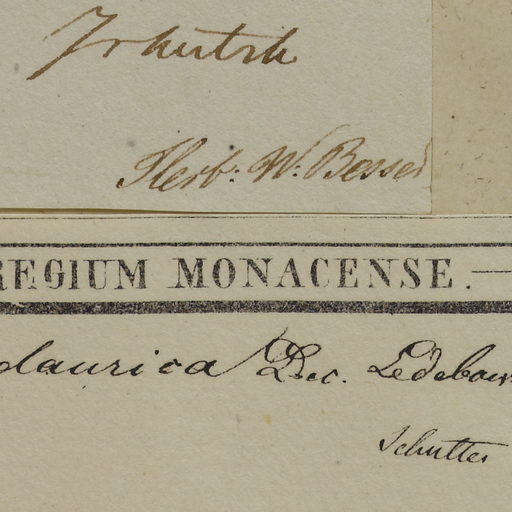 Irkutsk
Herb: W. Besser
REGIUM MONACENSE.
daurica Dec. Ledebour